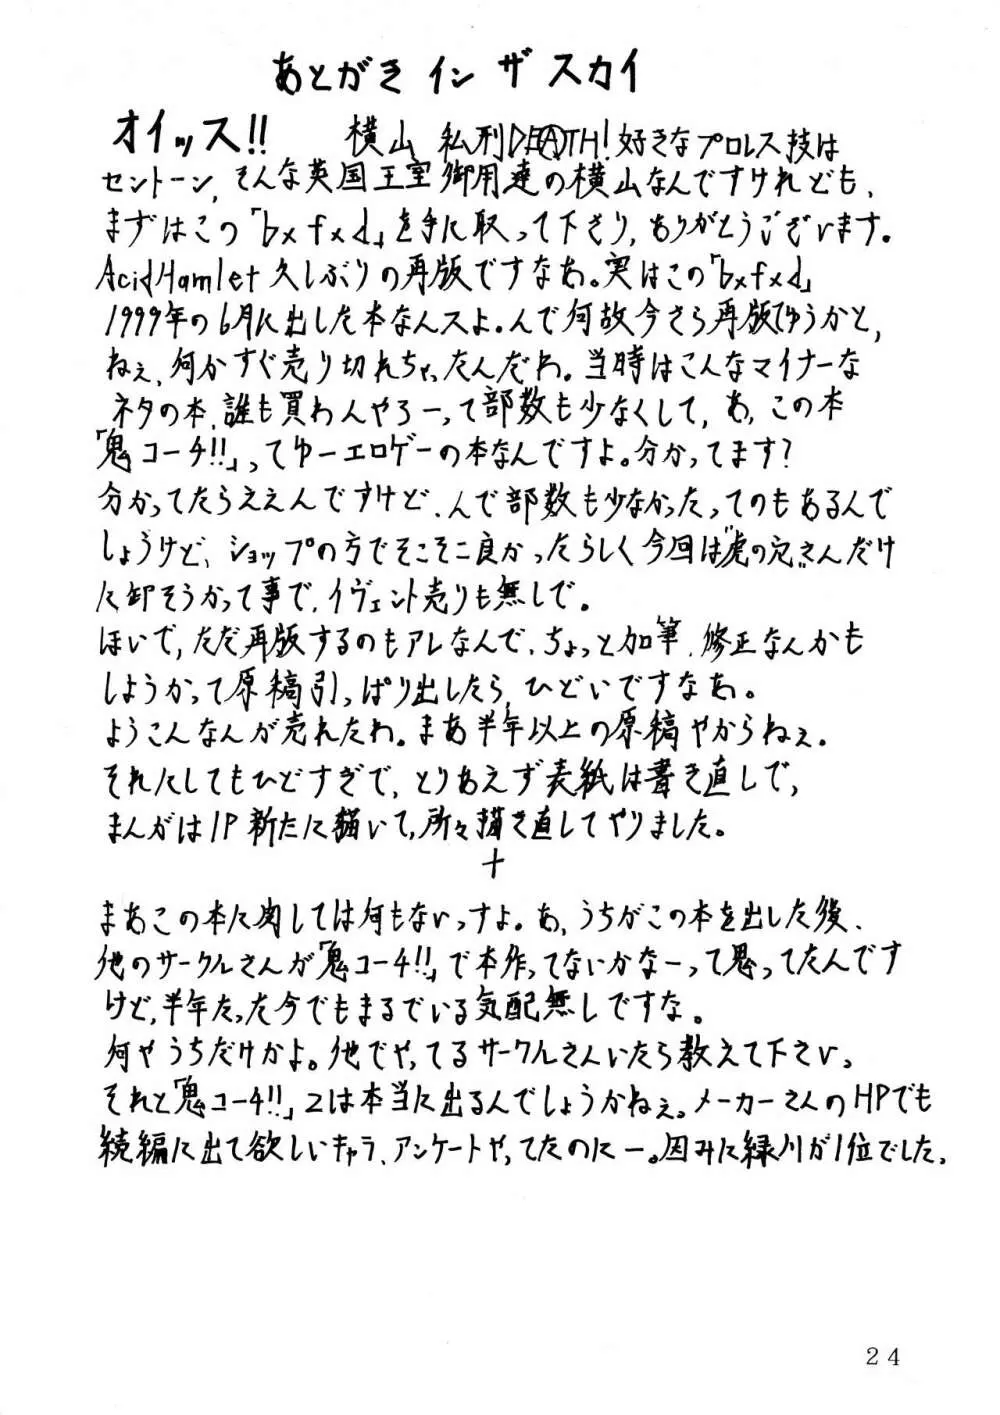 あとがき イン ザ スカイ
オイッス!! 横山 私刑DEATH! 好きなプロレス技は
セントーン, そんな英国王室御用達の横山なんですけれども、
まずはこの「bxfxd」を手に取って下さり, ありがとうございます。
AcidHamlet 久しぶりの再版ですなあ。実はこの「bxfxd」
1999年の6月に出した本なんスよ。んで何故今さら再版でゆうかと,
ねぇ、何かすぐ売り切れちゃったんだわ。当時はこんなマイナーな
ネタの本、誰も買わんやろーって部数も少なくして, あ、この本
「鬼コーチ!!」ってゆーエロゲーの本なんですよ。分かってます?
分かってたらええんですけど、んで部数も少なかったってのもあるんで
しょうけど、ショップの方でそこそこ良かったらしく今回は"虎の穴"さんだけ
に卸そうかって事で, イヴェント売りも無しで。
ほいで, ただ再版するのもアレなんで、ちょっと加筆、修正なんかも
しようかって原稿引っぱり出したら, ひどいですなあ。
ようこんなんが売れたわ。まあ半年以上の原稿やからねぇ。
それにしてもひどすぎで, とりあえず表紙は書き直しで,
まんがは1P新たに描いて, 所々描き直してやりました。
十
まあこの本に関しては何もないっすよ。あ, うちがこの本を出した後、
他のサークルさんが「鬼コーチ!!」で本作ってないかなーって思ってたんです
けど, 半年たった今でもまるでいる気配無しですな。
何やうちだけかよ。他でやってるサークルさんいたら教えて下さい。
それと「鬼コーチ!!」2は本当に出るんでしょうかねぇ。メーカーさんのHPでも
続編に出て欲しいキャラ、アンケートやってたのにー。因みに緑川が1位でした。
24